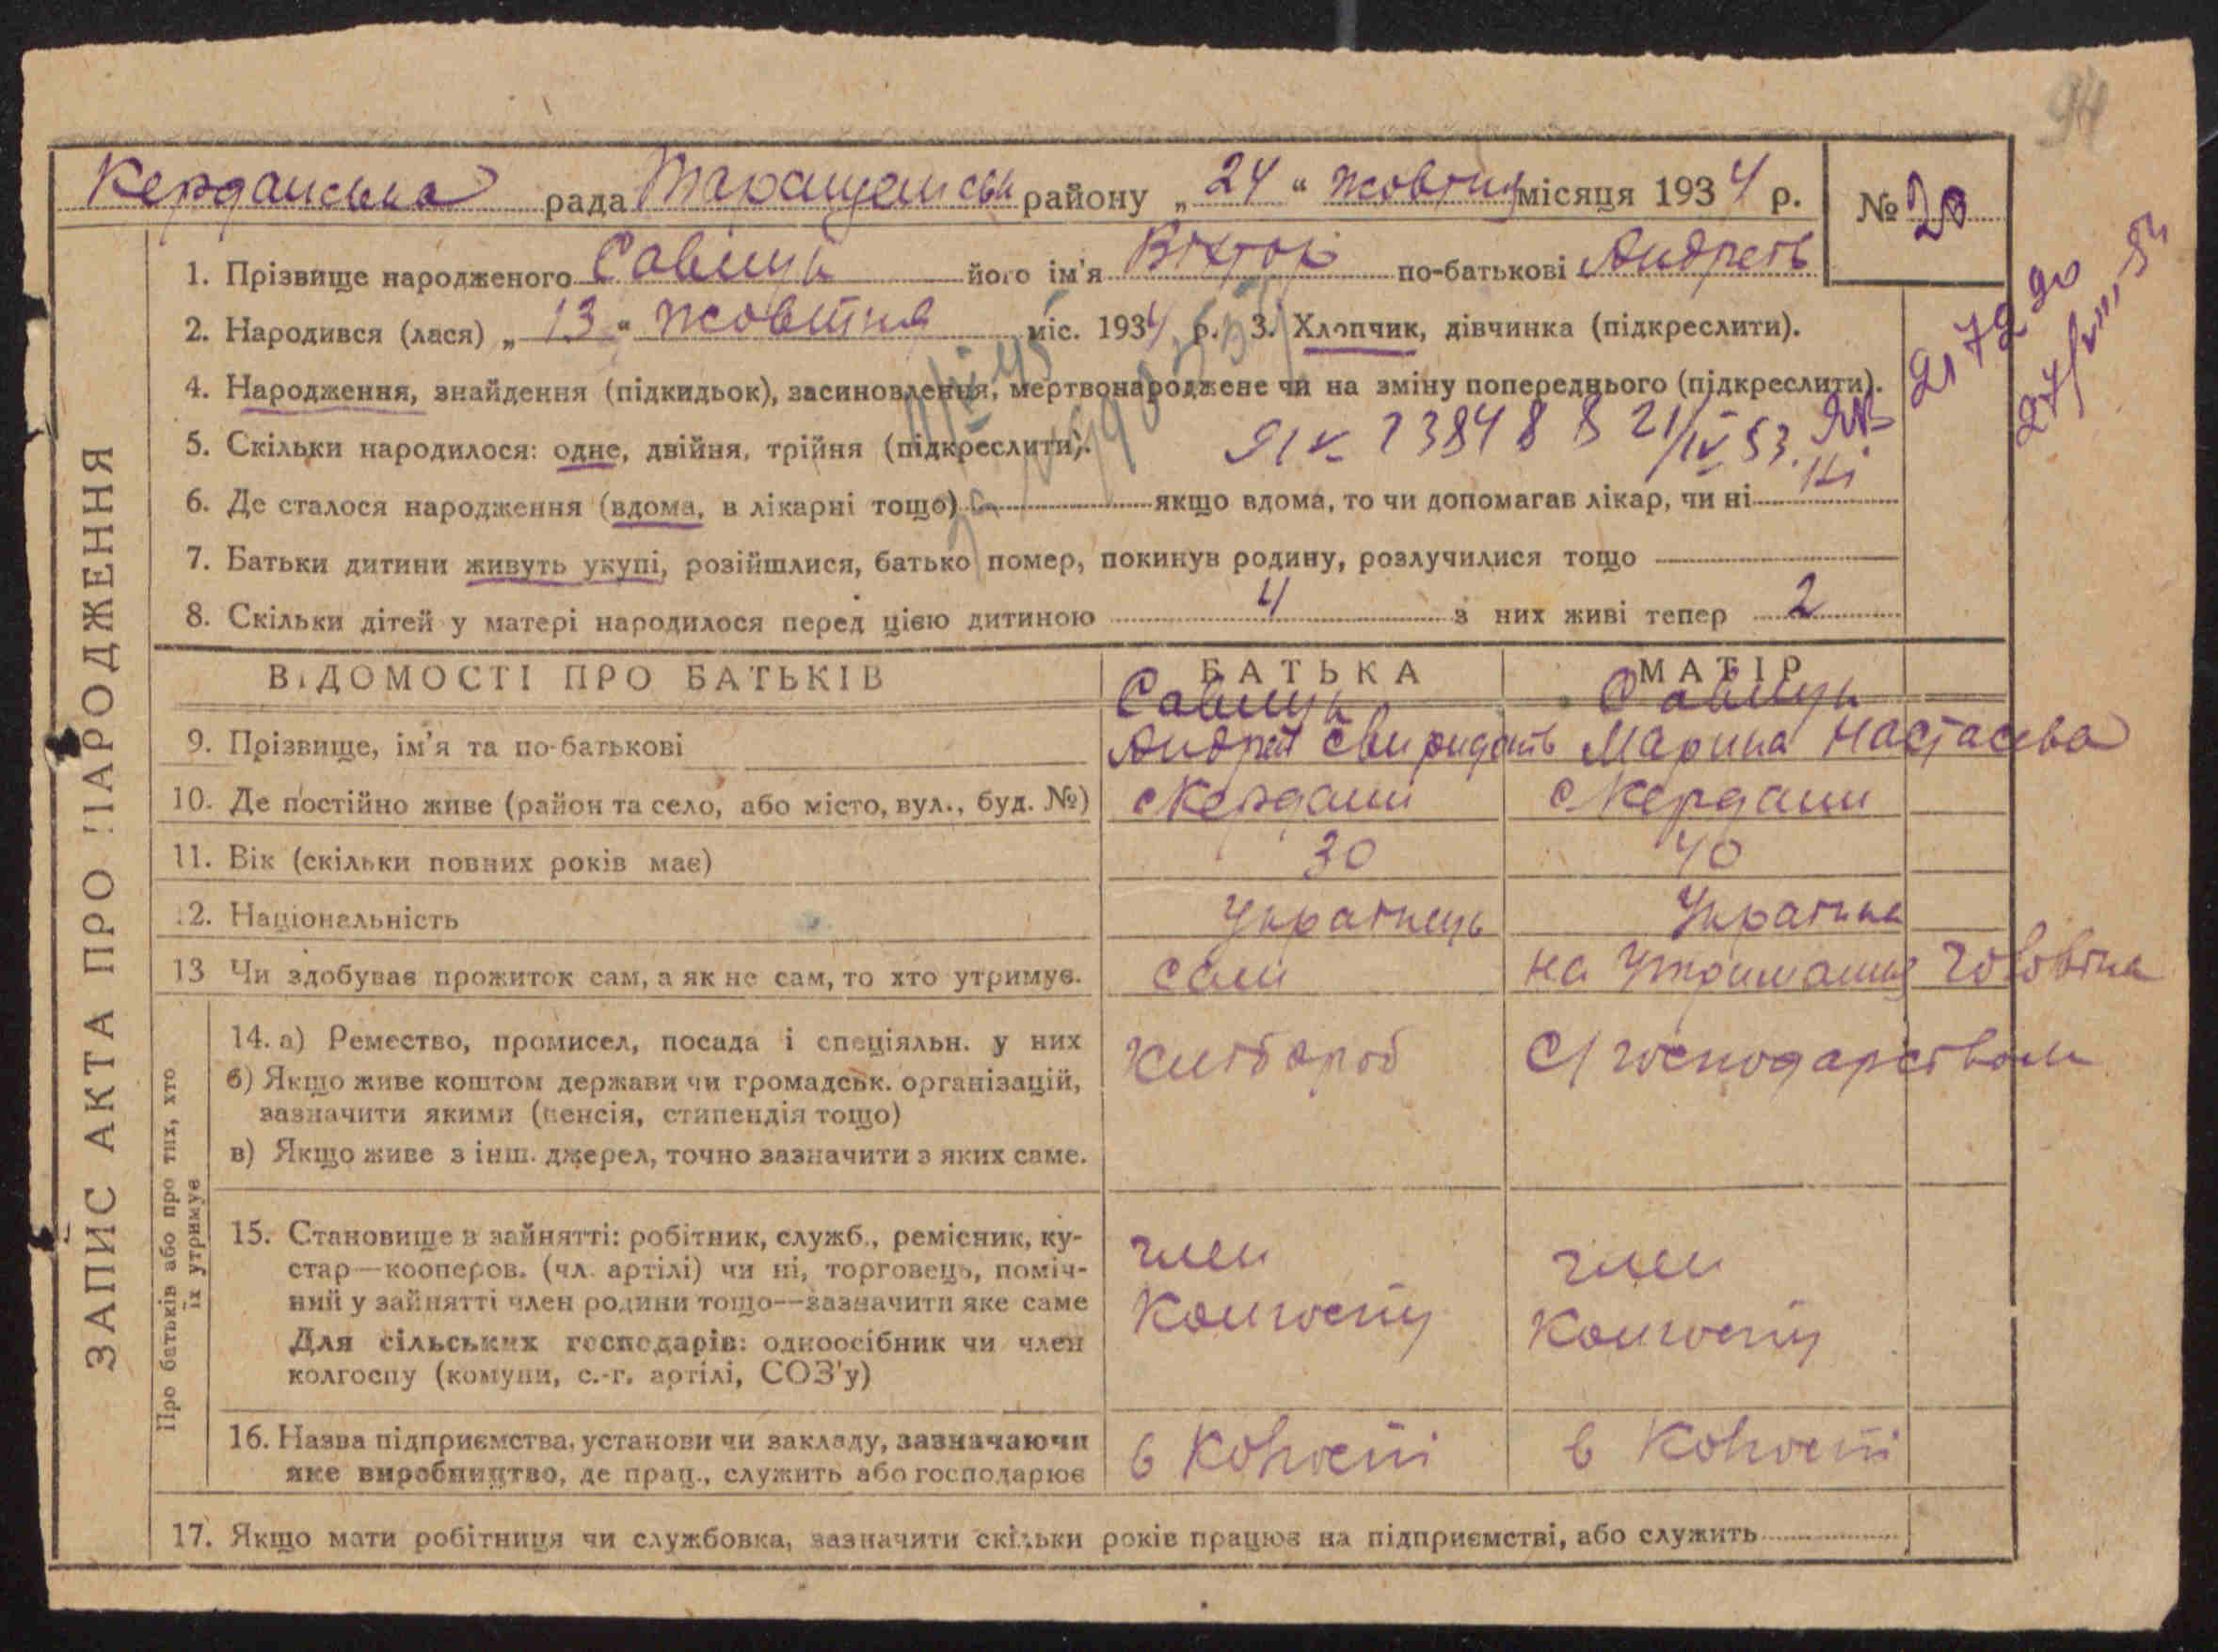 94
Керданська рада Таращанськ району „24“ жовтня місяця 1934 р. № 20
1. Прізвище народженого Савицьк його ім'я Віктор по-батькові Андреєв
2. Народився (лася) „13“ жовтня міс. 1934 р. 3. Хлопчик, дівчинка (підкреслити).
4. Народження, знайдення (підкидьок), засиновлення, мертвонароджене чи на зміну попереднього (підкреслити).
5. Скільки народилося: одне, двійня, трійня (підкреслити).
6. Де сталося народження (вдома, в лікарні тощо) якщо вдома, то чи допомагав лікар, чи ні Ні
7. Батьки дитини живуть укупі, розійшлися, батько помер, покинув родину, розлучилися тощо
8. Скільки дітей у матері народилося перед цією дитиною 4 з них живі тепер 2
ЗАПИС АКТА ПРО НАРОДЖЕННЯ
ВІДОМОСТІ ПРО БАТЬКІВ БАТЬКА МАТІР
9. Прізвище, ім'я та по-батькові Андрей Свиридов Марина Настасєва
10. Де постійно живе (район та село, або місто, вул., буд. №) с Кердани с Кердани
11. Вік (скільки повних років має) 30 40
12. Національність Українець Українка
13 Чи здобуває прожиток сам, а як не сам, то хто утримує. сам на утриманні чоловіка
Про батьків або про тих, хто
їх утримує
14. а) Ремество, промисел, посада і спеціяльн. у них хлібороб С/господарством
б) Якщо живе коштом держави чи громадськ. організацій,
зазначити якими (пенсія, стипендія тощо)
в) Якщо живе з інш. джерел, точно зазначити з яких саме.
15. Становище в зайнятті: робітник, служб., ремісник, ку-
стар—кооперов. (чл. артілі) чи ні, торговець, поміч-
ний у зайнятті член родини тощо—зазначити яке саме
Для сільських господарів: одноосібник чи член
колгоспу (комуни, с.-г. артілі, СОЗ'у)
член член
Колгоспу Колгоспу
16. Назва підприємства, установи чи закладу, зазначаючи
яке виробництво, де прац., служить або господарює
в Колгоспі в Колгоспі
17. Якщо мати робітниця чи службовка, зазначити скільки років працює на підприємстві, або служить